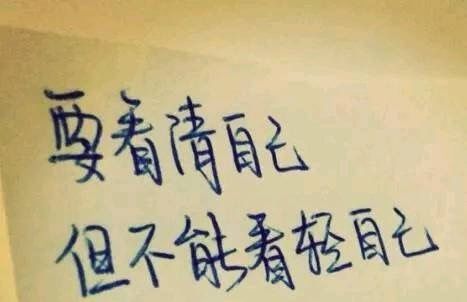 要看清自己
但不能看轻自己